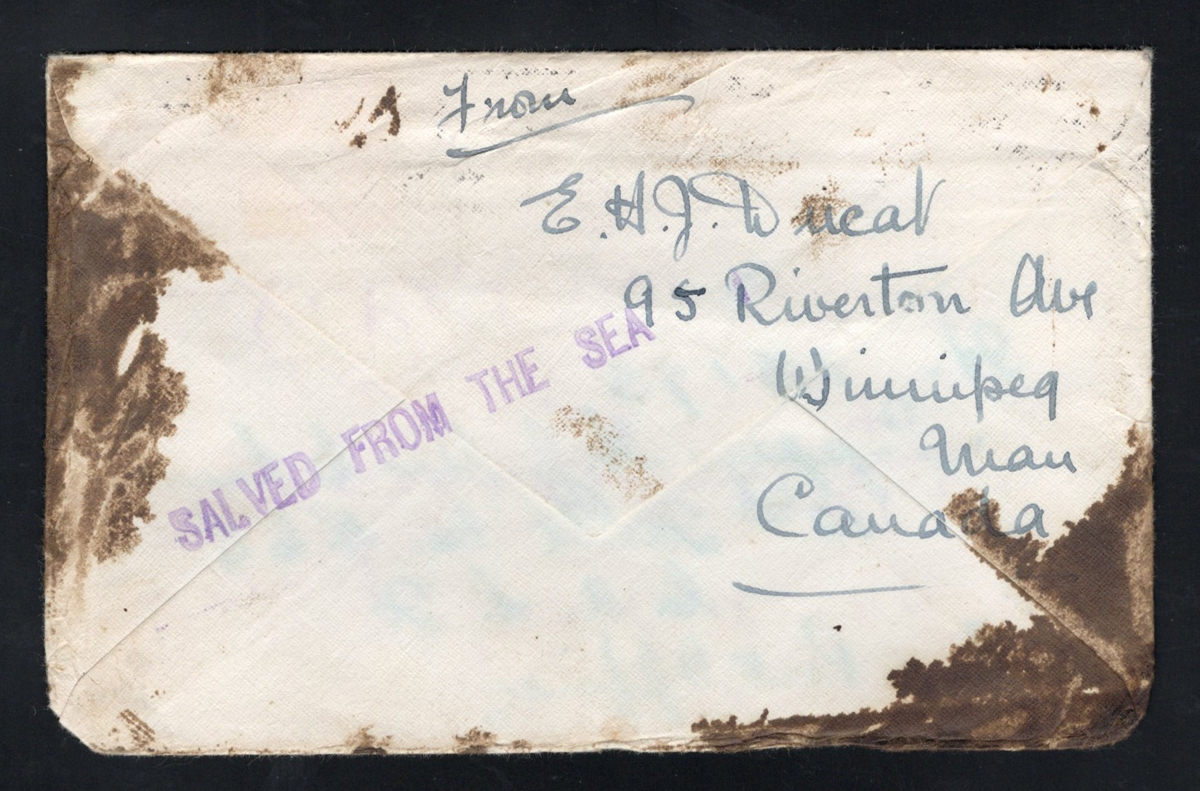 From
E. H. J. Ducat
95 Riverton Ave
Winnipeg
Man
Canada
SALVED FROM THE SEA